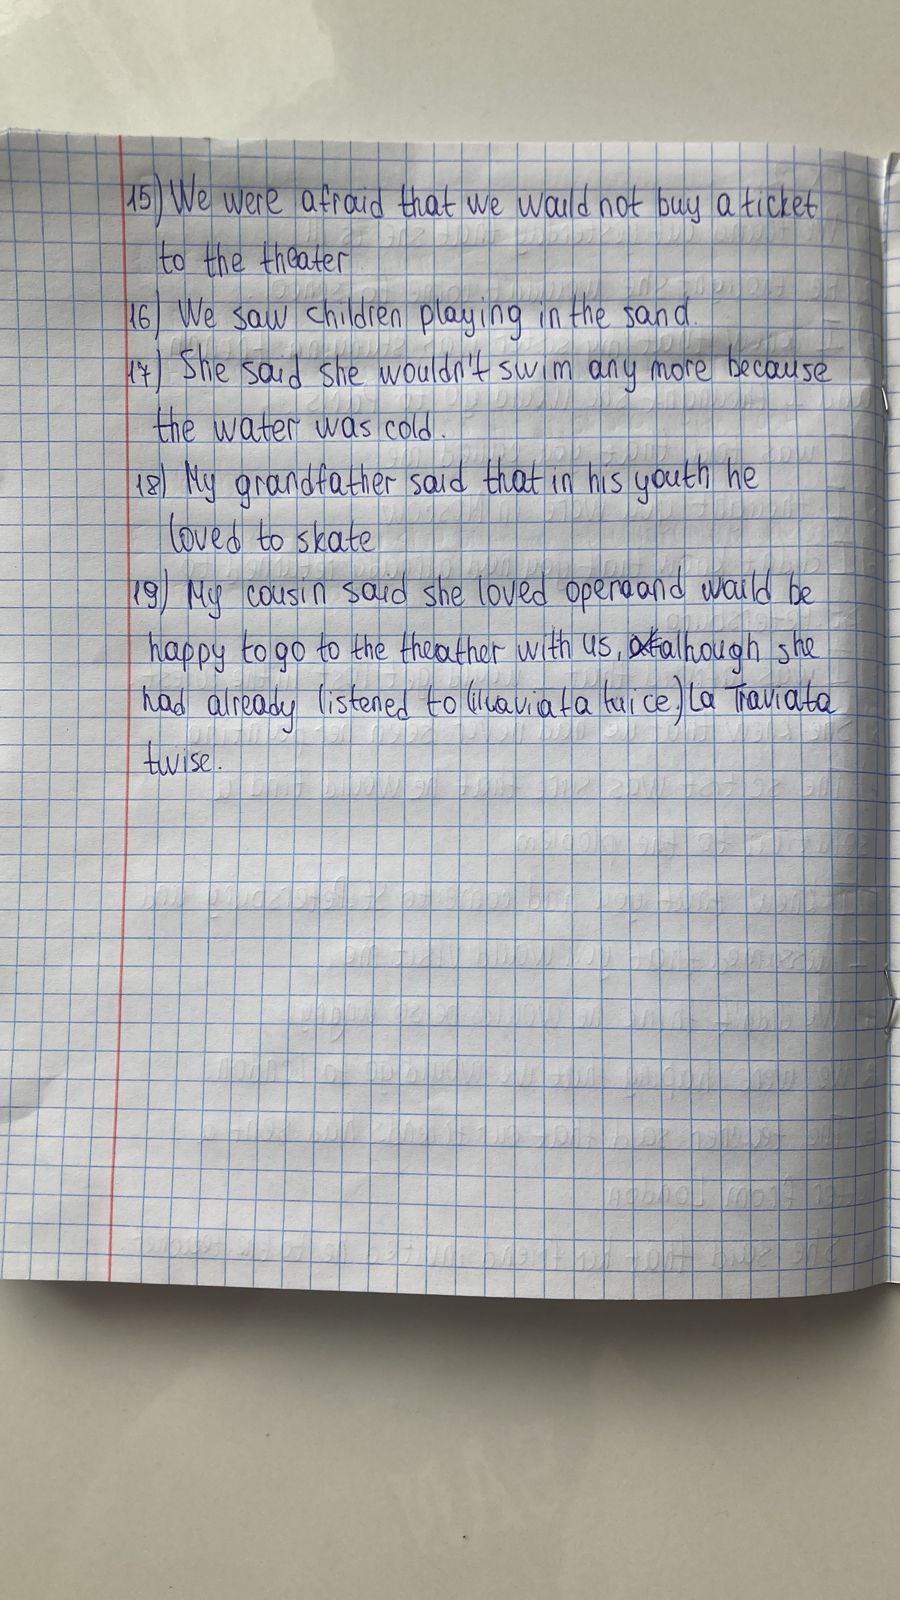 15) We were afraid that we would not buy a ticket
to the theater
16) We saw children playing in the sand.
17) She said she wouldn't swim any more because
the water was cold.
18) My grandfather said that in his youth he
loved to skate
19) My cousin said she loved opera and would be
happy to go to the theather with us, alhough she
had already listened to La Traviata
twise.